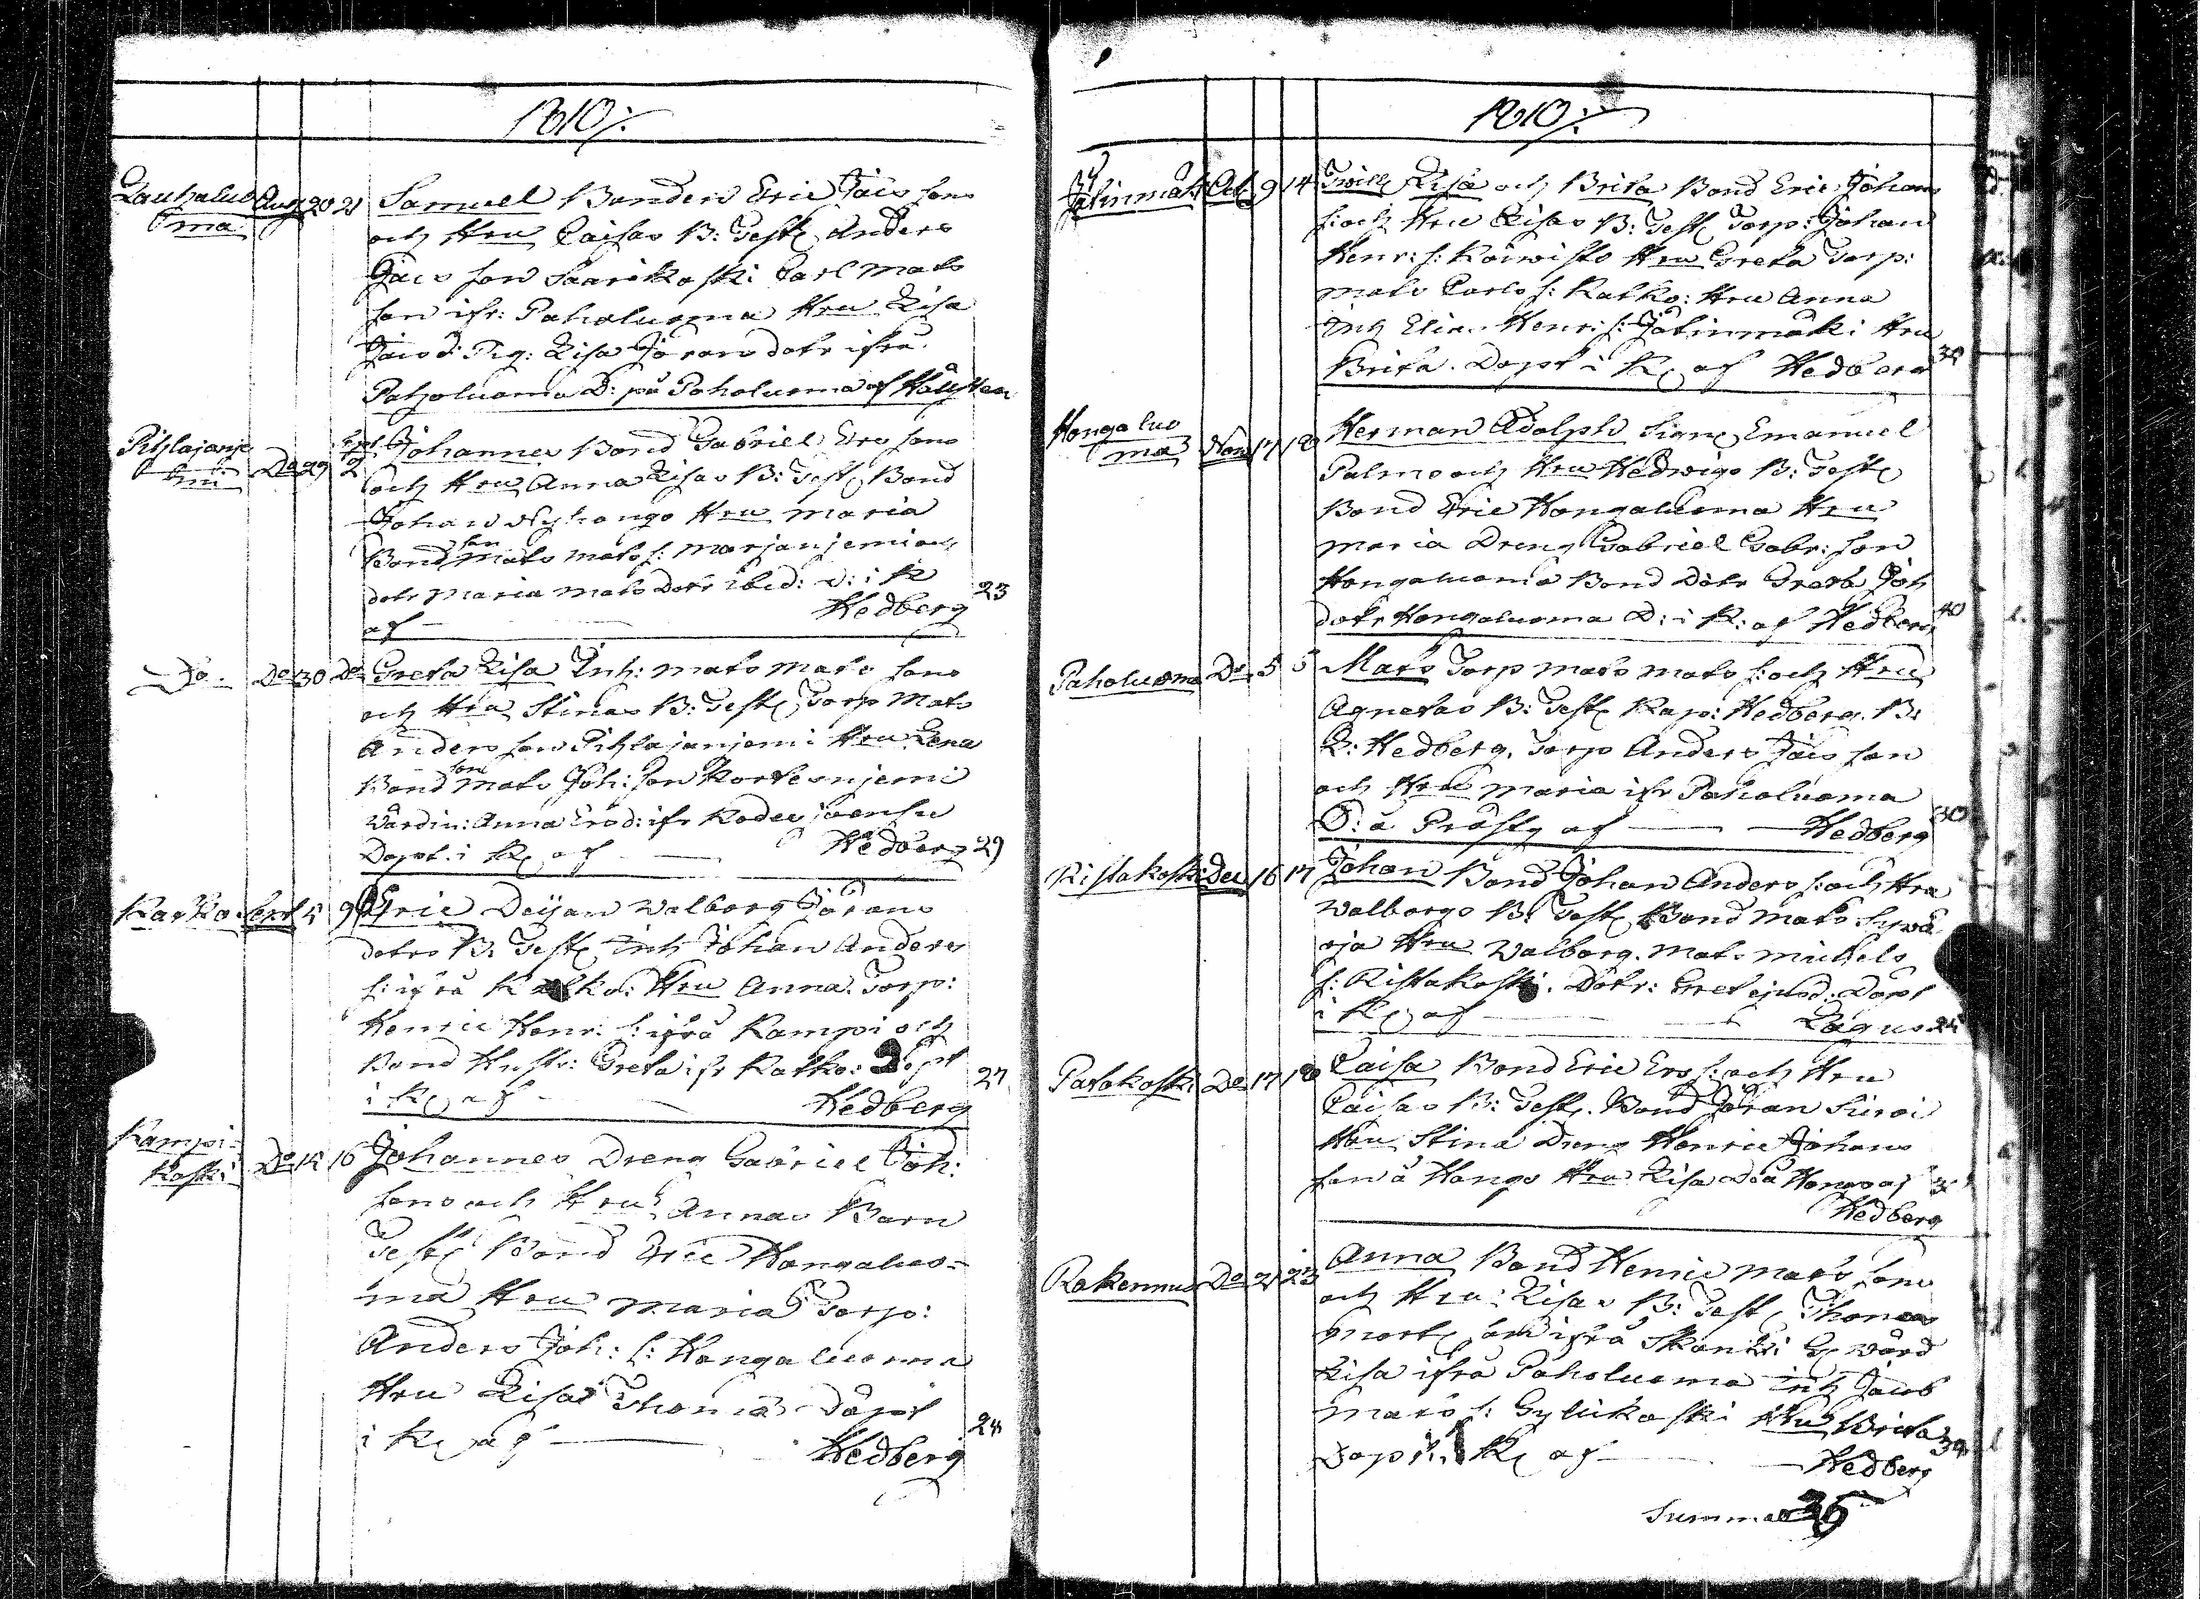 1810 ⁒
Lauhaluo Aug 20 21 Samuel Bonden Eric Jacs sons
ma och Hru Caisas B: Test Anders
Jacs son Saarikoski Carl Mats
son ifr: Paholuoma Hru Lisa
Jacs d: Pig: Lisa Jörans dotr ifrå
Paholuoma D: på Paholuoma af
Pihlajanje Do 29 Sept 2 Johannes Bond Gabriel Ers sons
mi och Hru Anna Lisas B: Test Bond
Johan Nyhango Hru Maria
Bond son Mats Mats s: Marjanjemi och
dotr Maria Mats dotr ibid: D: i K
af — Hedberg 23
Do Do 30 Do Greta Lisa Inh: Mats Mats sons
och Hru Stinas B: Test Torp Mats
Anders son Pihlajanjemi Hru Lena
Bond son Mats Joh: son Kortesnjemi
Värdin: Anna Ers d: ifr
Döpt i K af — Hedberg 29
Katko Sept 5 9 Eric Deijan Walborg Jörans
dotrs B. Test Inh Johan Anders
s: ifrå Katko: Hru Anna. Torp:
Henric Henr: s: ifrå Kampi och
Bond Hustr: Greta ifr Katko: Döpt
i K af — Hedberg 27
Kampi-
koski Do 15 16 Johannes Dreng Gabriel Joh:
sons och Hru Annas Barn
Test Bond Eric Hongaluo-
ma Hru Maria Torp:
Anders Joh: s: Hongaluoma
Hru Lisa Thomæ Döpt
i K af — Hedberg 24
1810 ⁒
Jälinmäki Oct 9 14 Twill Lisa och Brita Bond Eric Johans
s: och Hru Lisas B: Test Torp: Johan
Henr: s: Koiwisto Hru Greta Torp:
Mats Carls s: Katko: Hru Anna
Inh Elias Henr: s: Jälinmäki Hru
Brita. Döpt i K af Hedberg
Hongaluo
ma Nov 17 18 Herman Adolph Emanuel
Palms och Hru Hedwigs B: Test
Bond Eric Hongaluoma Hru
Maria Dreng Gabriel Gabr: son
Hongaluoma Bond Dotr Greta Joh
dotr Hongaluoma D: i K: af Hedberg 40
Paholuoma Do 5 5 Mats Torp Mats Mats s: och Hru
Agnetas B: Test Kap: Hedberg. B:
L: Hedberg, Torp Anders Jacs son
och Hru Maria ifr Paholuoma
D: å Prästg af — Hedberg 30
Ristakoski Dec 16 17 Johan Bond Johan Anders s: och Hru
Walborgs B: Test Bond Mats
Hru Walborg. Mats Michels
s: Ristakoski. Dotr: Gret ejusd: Döpt
i K af — Lagus
Patakoski Do 17 18 Caisa Bond Eric Ers s: och Hru
Caisas B: Test. Bond Jöran
Hru Stina Dreng Henric Johans
son å Hango Hru Lisa D: å Hango af
Hedberg
Rakennus Do 21 23 Anna Bond Henric Mats sons
och Hru: Lisas B: Test Thomas
Mort son ifrå Wärd
Lisa ifrå Paholuoma Inh Jacob
Mats s: Gyllikoski Hru Brita
Döpt i K af — Hedberg
Summa 36